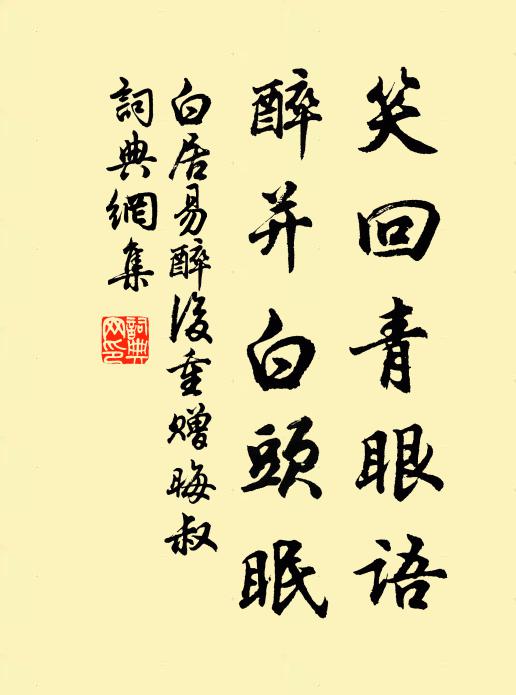 笑回青眼語
醉并白頭眠
白居易醉後重贈晦叔
詞典網集
詞典
网印